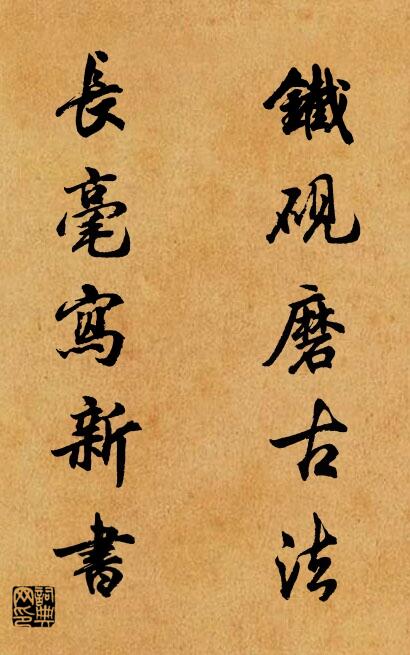 鐵硯磨古法
長毫寫新書
詞典網印